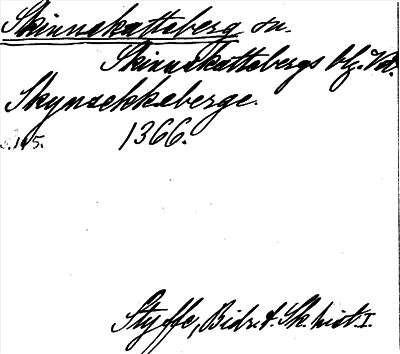 Skinnekatteberg sn.
Skinnskattebergs bg. Vm.
Skynsekkeberge.
s. 145. 1366.
Styffe, Bidr. t. Sk. hist. I.